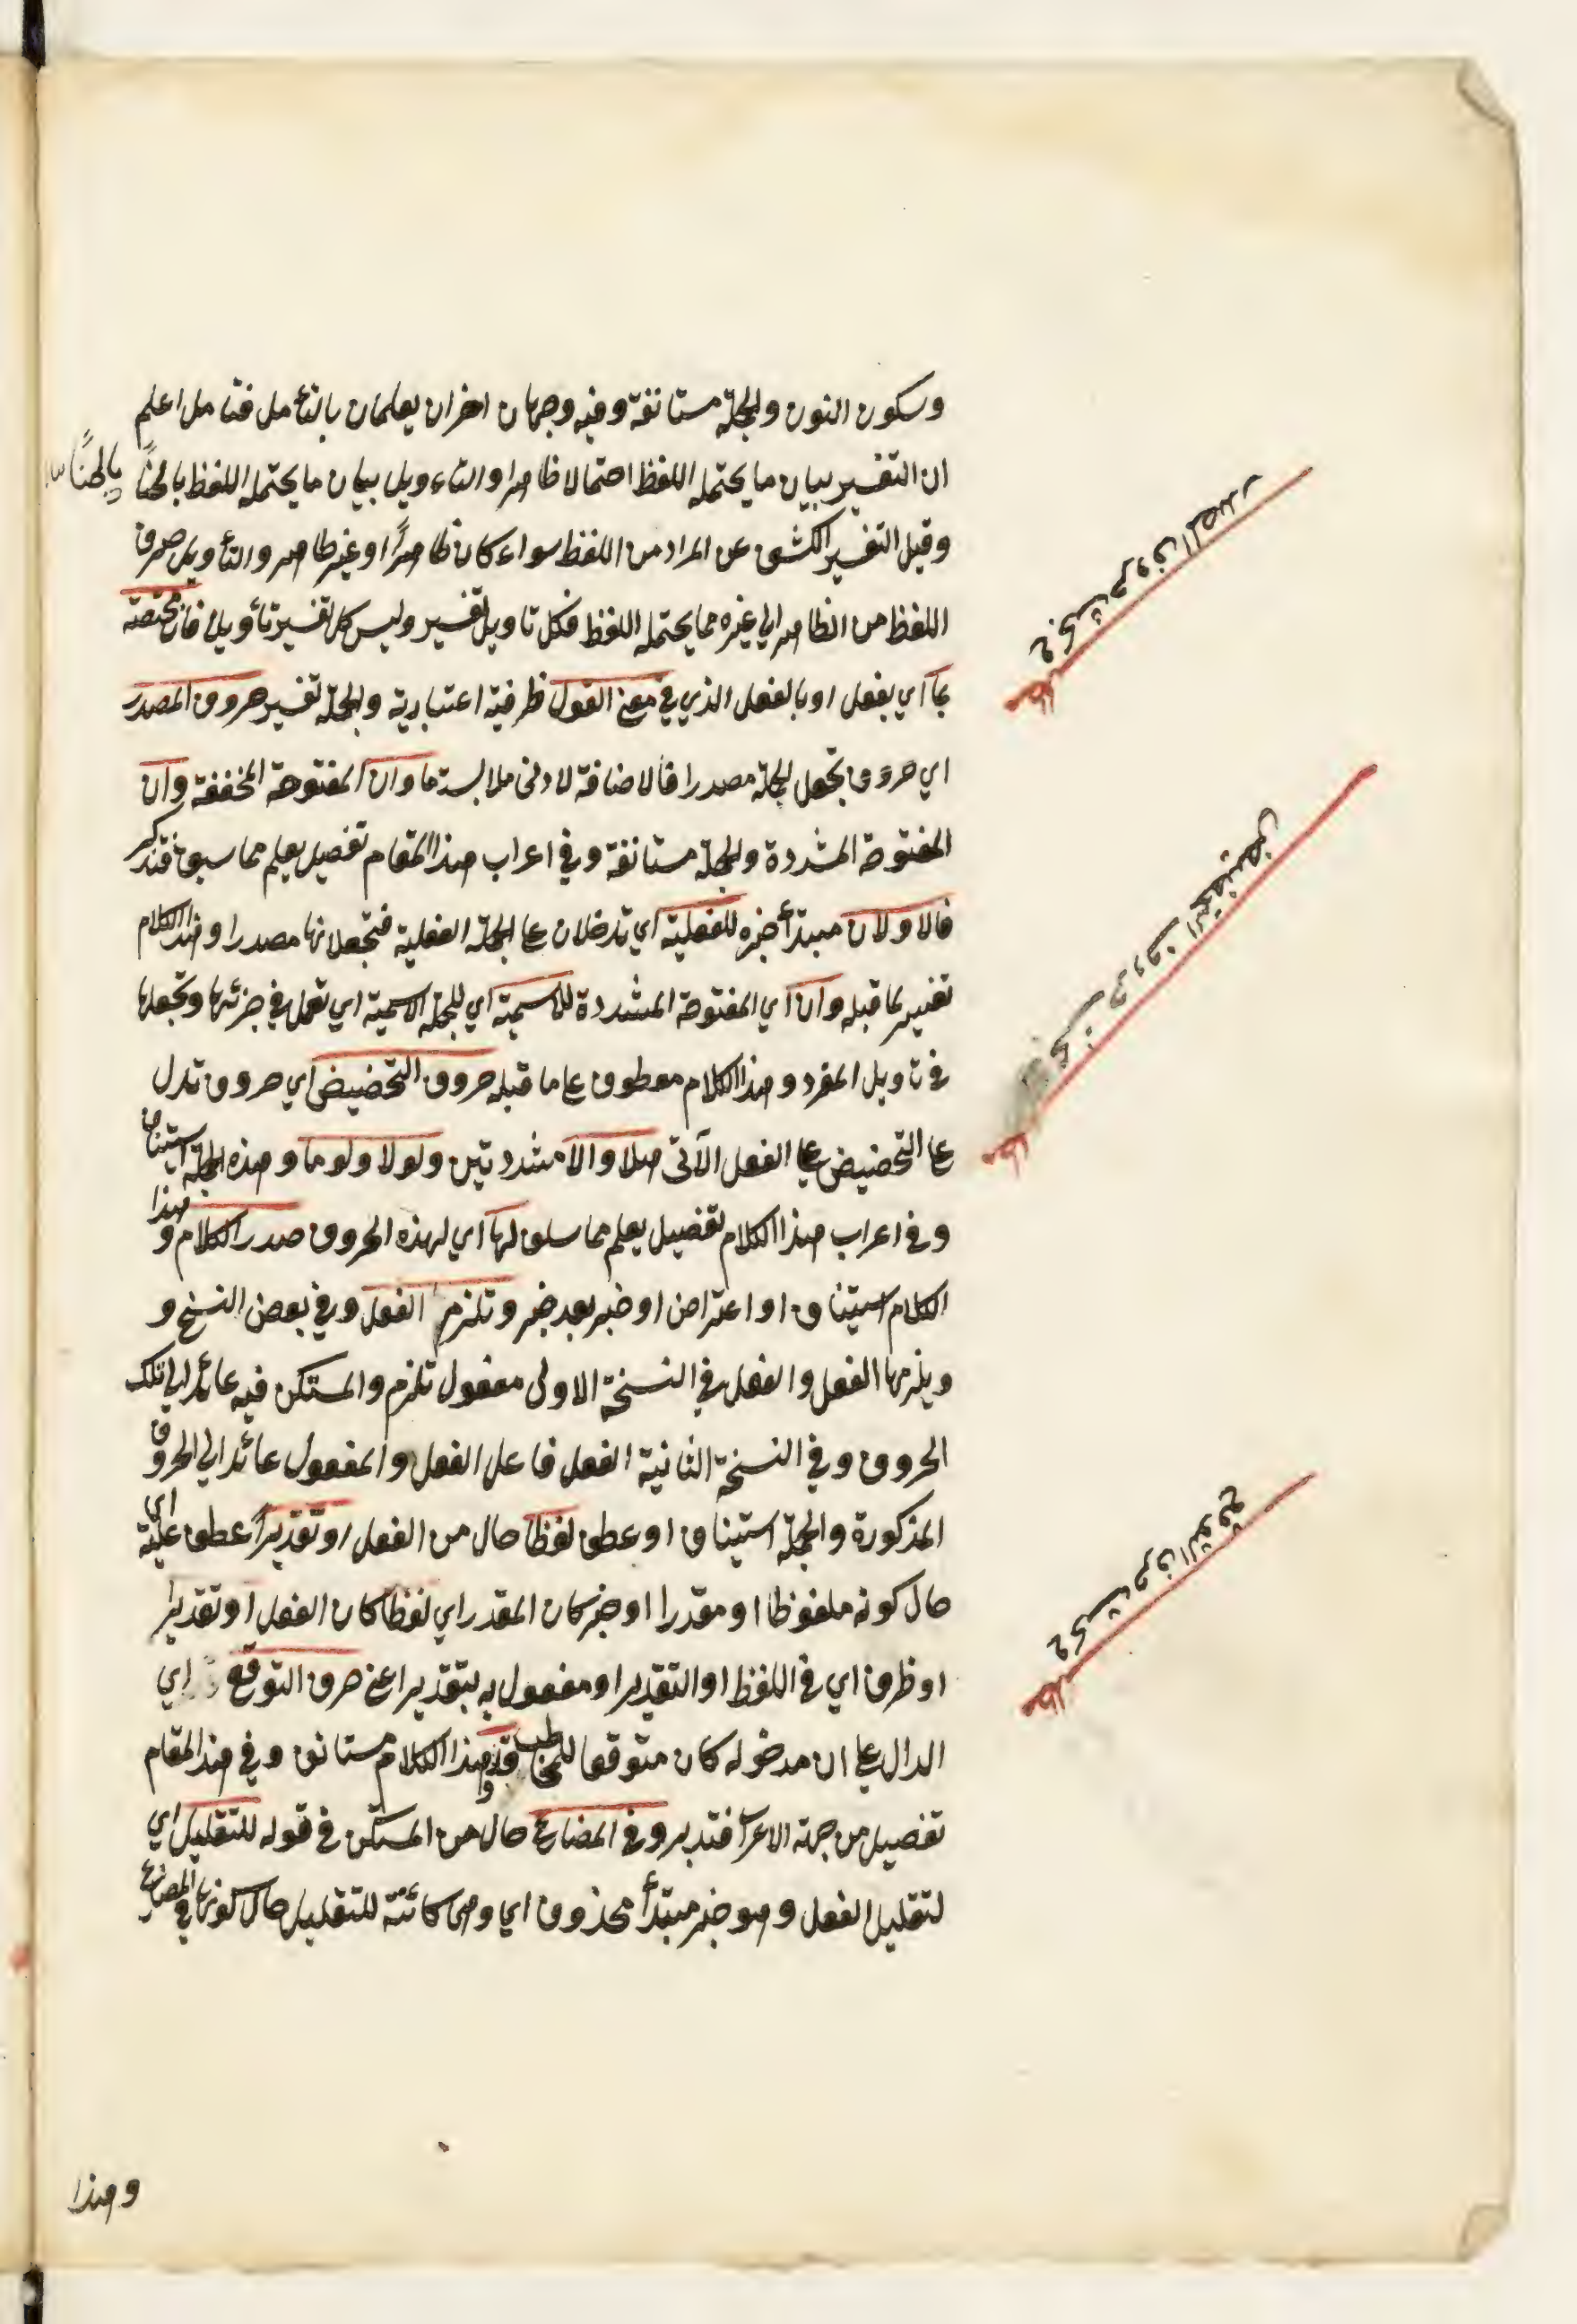 وسكون النون والجملة مستانفة وفيه وجهان اخران يعلمان بالتأمل فتامل اعلم
ان التفسير بيان ما يحتمله اللفظ احتمالا ظاهرا والتاءويل بيان ما يحتمله اللفظ باطنًا
باطنًا
وقيل التفسير الكشف عن المراد من اللفظ سواء كان ظاهرًا او غير ظاهر والتأويل صرف
اللفظ من الظاهر الي غيره مما يحتمله اللفظ فكل تاويل تفسير وليس كل تفسير تأويل فان مختصة
بما اي بفعل او بالفعل الذي في معنى القول ظرفية اعتبارية والجملة تفسير حروف المصدر
اي حروف تجعل الجملة مصدرا فالاضافة لادنى ملابسة ما وان المفتوحة المخففة وان
المفتوحة المشددة والجملة مستانفة وفي اعراب هذا المقام تفصيل يعلم مما سبق فتذكر
فالاولان مبتدأ خبره للفعلية اي تدخلان على الجملة الفعلية فتجعلانها مصدرا وهذا الكلام
تفسير لما قبله وان اي المفتوحة المشددة للاسمية اي للجملة الاسمية اي تعمل في جزئها وتجعلها
في تاويل المفرد وهذا الكلام معطوف على ما قبله حروف التحضيض اي حروف تدل
على التحضيض على الفعل الآتى هلا والا مشددتين ولولا ولوما وهذه الجملة استيناف
وفي اعراب هذا الكلام تفصيل يعلم مما سلف لها اي لهذه الحروف صدر الكلام وهذا
الكلام استيناف او اعتراض او خبر بعد خبر وتلزم الفعل وفي بعض النسخ و
ويلزمها الفعل والفعل في النسخة الاولى مفعول تلزم والمستكن فيه عائد الي تلك
الحروف وفي النسخة الثانية الفعل فاعل الفعل والمفعول عائد الي الحروف
المذكورة والجملة استيناف او عطف لفظا حال من الفعل او تقديرًا عطف عليه اي
حال كونه ملفوظا او مقدرا او خبر كان المقدر اي لفظا كان الفعل او تقديرا
او ظرف اي في اللفظ او التقدير او مفعول به بتقدير اعني حرف التوقع اي
الدال على ان مدخوله كان متوقعا للمخاطب قد وهذا الكلام مستانف وفي هذا المقام
تفصيل من جهة الاعراب فتدبر وفي المضارع حال من المستكن في قوله للتقليل اي
لتقليل الفعل وهو خبر مبتدأ محذوف اي وهي كائنة للتقليل حال كونها في المضارع
وهذا
بحث حروف المصدر
بحث حروف التحضيض
بحث حرف التوقع